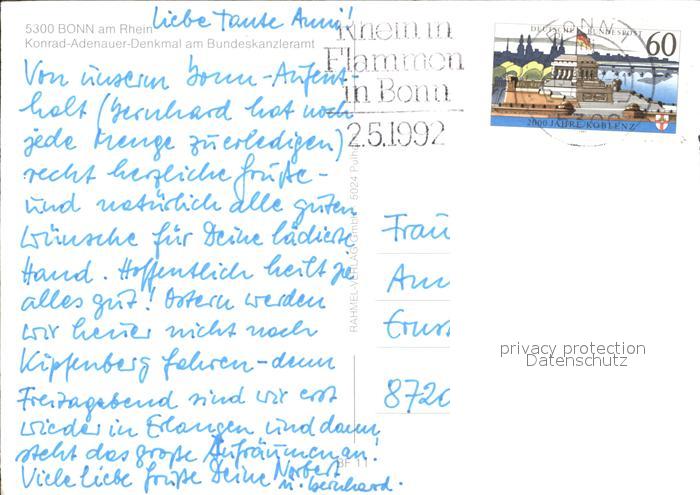 Liebe Tante Anni!
5300 BONN am Rhein
Konrad-Adenauer-Denkmal am Bundeskanzleramt
Von unserm Bonn-Aufent-
halt (Bernhard hat noch
jede Menge zu erledigen)
recht herzliche Grüße -
und natürlich alle guten
Wünsche für Deine lädierte
Hand. Hoffentlich heilt sie
alles gut! Ostern werden
wir heuer nicht nach
Kipfenberg fahren - denn
Freitagabend sind wir erst
wieder in Erlangen und dann
steht das große Aufräumen an.
Viele liebe Grüße Deine Norbert
u. Bernhard.
RAHMEL-VERLAG GmbH, 5024 Pulh
BF 11
Rhein in
Flammen
in Bonn
2.5.1992
BONN 1
DEUTSCHE BUNDESPOST
60
2000 JAHRE KOBLENZ
Frau
Ann
Ernst
8720
privacy protection
Datenschutz